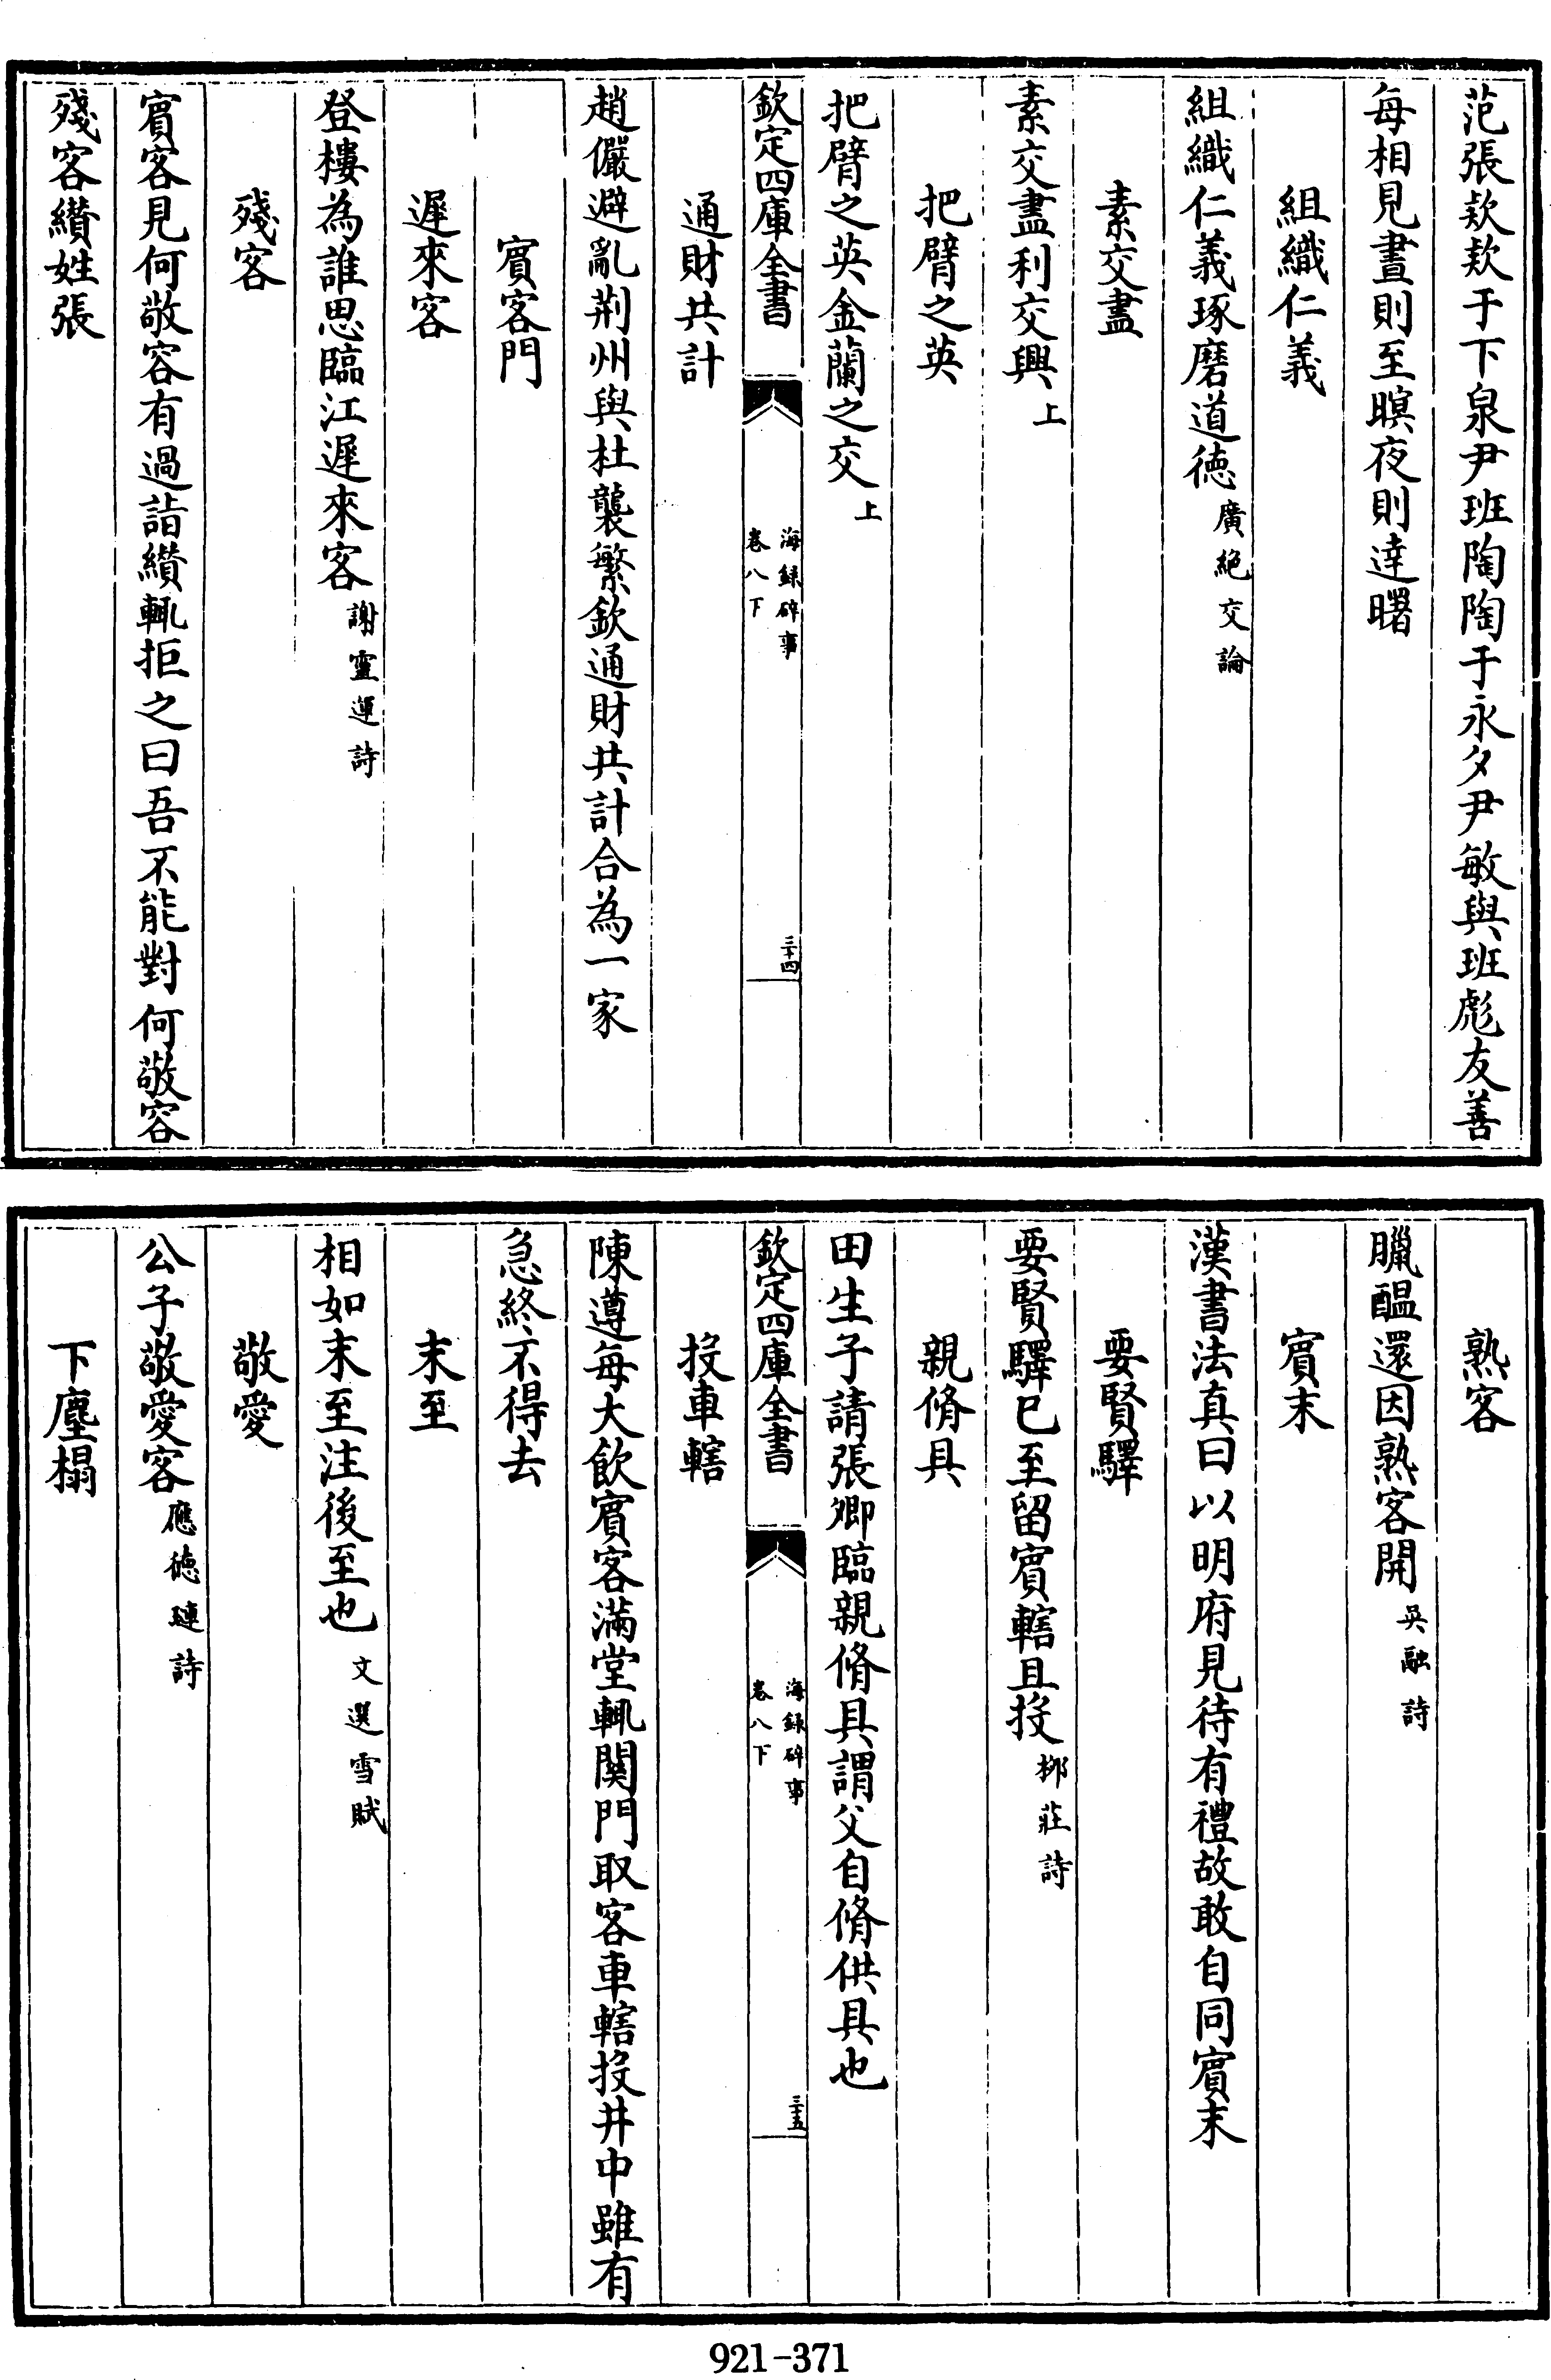 范張欵欵于下泉尹班陶陶于永夕尹敏與班彪友善
每相見晝則至暝夜則達曙
組織仁義
組織仁義琢磨道徳廣絶交論
素交盡
素交盡利交興上
把臂之英
把臂之英金蘭之交上
欽定四庫全書
海録碎事
卷八下
三十四
通財共計
趙儼避亂荆州與杜襲繁欽通財共計合為一家
賓客門
遲來客
登樓為誰思臨江遲來客謝靈運詩
殘客
賓客見何敬容有過詣纘輒拒之曰吾不能對何敬容
殘客纘姓張
熟客
臘醖還因熟客開吳融詩
賓末
漢書法真曰以明府見待有禮故敢自同賓末
要賢驛
要賢驛已至留賓轄且投柳莊詩
親脩具
田生子請張卿臨親脩具謂父自脩供具也
欽定四庫全書
海録碎事
卷八下
三十五
投車轄
陳遵每大飲賓客滿堂輒関門取客車轄投井中雖有
急終不得去
末至
相如末至注後至也文選雪賦
敬愛
公子敬愛客應徳璉詩
下塵榻
921-371